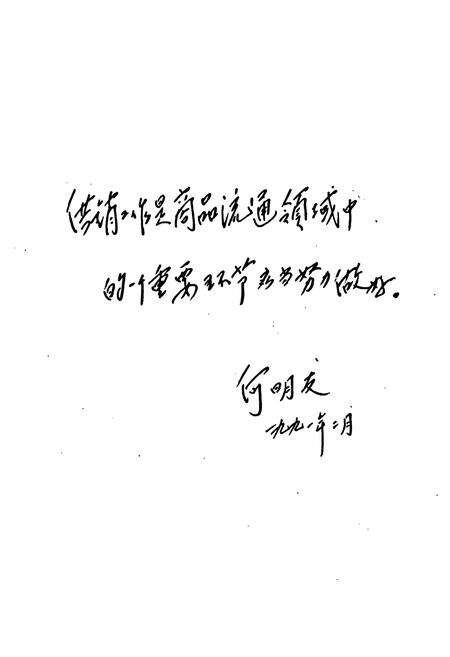 供销工作是商品流通领域中
的一个重要环节应当努力做好。
何明友
一九九一年二月